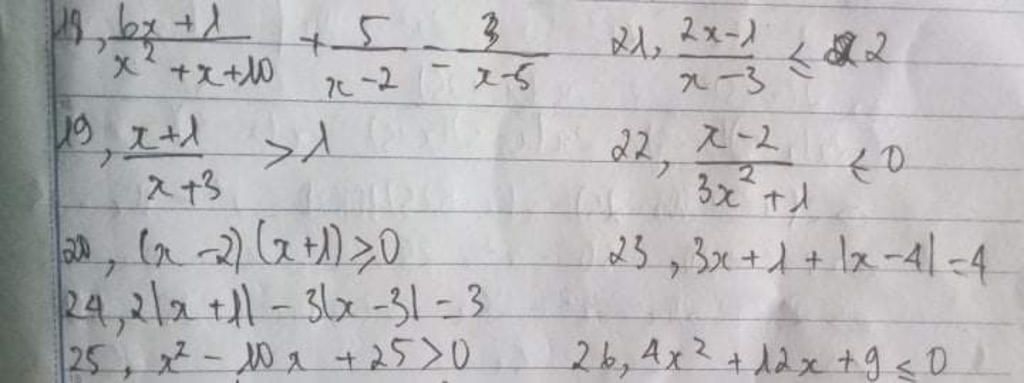 18, 6x+1/x²+x+10 + 5/x-2 - 3/x-5 21, 2x-1/x-3 ≤ 2
19, x+1/x+3 > 1 22, x-2/3x²+1 < 0
20, (x-2)(x+1)≥0 23, 3x+1+|x-4|=4
24, 2|x+1|-3|x-3|=3
25, x²-10x+25>0 26, 4x²+12x+9≤0